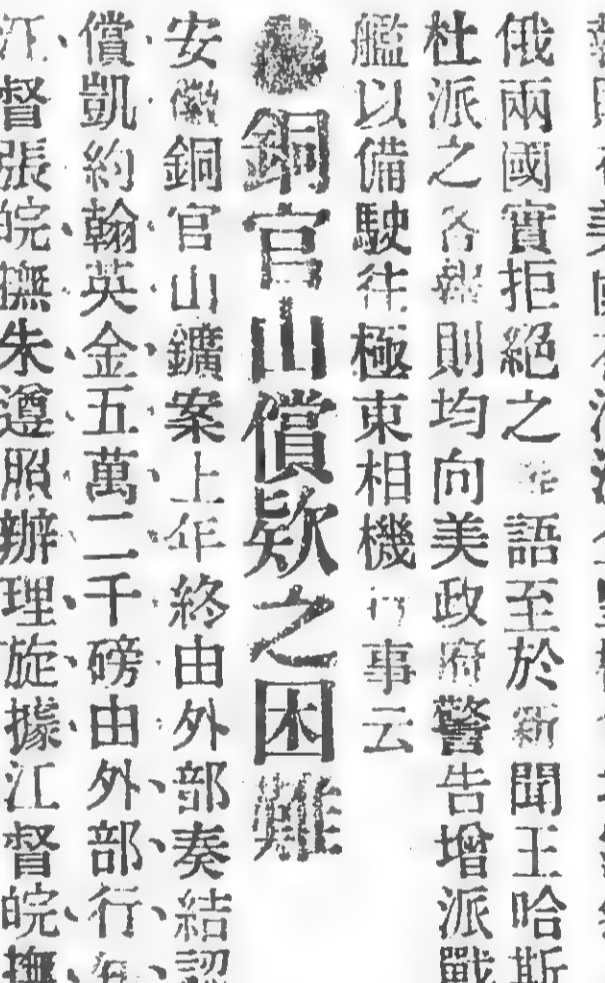 美國
俄兩國實拒絕之語至於新聞王哈斯
杜派之各報則均向美政府警告增派戰
艦以備駛往極東相機行事云
●銅官山償欵之困難
安徽銅官山鑛案上年終由外部奏結認
償凱約翰英金五萬二千磅由外部行
江督張皖撫朱遵照辦理旋據江督皖撫